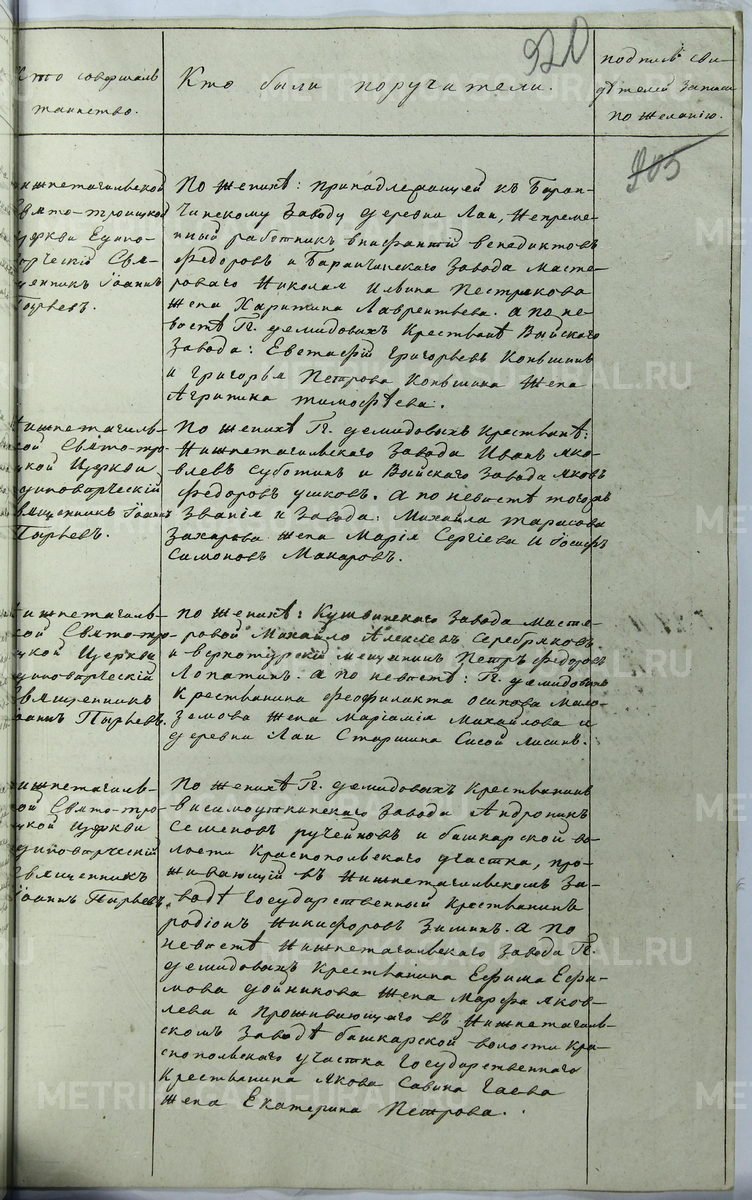 920
Кто совершалъ
таинство.
Кто были поручители.
подпись сви-
дѣтелей записи
по желанію.
905
Нижнетагильской
Свято-троицкой
Церкви Едино-
верческій Свя-
щенникъ Іоаннъ
Пырьевъ.
По женихѣ: принадлежащей къ Баран-
чинскому Заводу деревни Лаи, Непреме-
нный работникъ Епифантій Венедиктовъ
Федоровъ и Баранчинскаго Завода Масте-
роваго Николая Ильина Пестрякова
Жена Харитина Лаврентьева. а по не-
вѣстѣ Гг. демидовыхъ Крестьянѣ Выйскаго
Завода: Евстафій Григорьевъ Коньшинъ
и Григорья Петрова Коньшина Жена
Агрипина тимофѣева.
Нижнетагиль-
ской Свято-тро-
ицкой Церкви
Единоверческій
Священникъ Іоаннъ
Пырьевъ.
По женихѣ Гг. демидовыхъ Крестьянѣ:
Нижнетагильскаго Завода Иванъ Яко-
влевъ Суботинъ и Выйскаго Завода Яковъ
Федоровъ Ушковъ. А по невѣстѣ тогожъ
Званія и Завода: Михайла тарасова
Захарова жена Марія Сергіева и Іосифъ
Симоновъ Макаровъ.
Нижнетагиль-
ской Свято-тро-
ицкой Церкви
Единоверческій
Священникъ
Іоаннъ Пырьевъ.
По женихѣ: Кушвинскаго Завода Масте-
ровой Михайло Алексѣевъ Серебряковъ
и верхотурскій мещанинъ Петръ Федоровъ
Лопатинъ. а по невѣстѣ: Гг. демидовыхъ
Крестьянина феофилакта осипова Мало-
земова жена Маріамія Михайлова и
деревни Лаи Старшина Сисой Лисинъ.
Нижнетагиль-
ской Свято-тро-
ицкой Церкви
Единоверческій
Священникъ
Іоаннъ Пырьевъ.
По женихѣ Гг. демидовыхъ Крестьянинъ
висимоуткинскаго Завода Андроникъ
Семеновъ ручейновъ и башкарской во-
лости Краснопольскаго участка, про-
живающій въ Нижнетагильскомъ За-
водѣ Государственный Крестьянинъ
родіонъ Никифоровъ Зиминъ. а по
невѣстѣ Нижнетагильскаго Завода Гг.
демидовыхъ Крестьянина Ефима Ефи-
мова дойникова жена Марфа Яков-
лева и проживающаго въ Нижнетагиль-
скомъ Заводѣ башкарской волости Кра-
снопольскаго участка Государственнаго
Крестьянина Якова Савина Гаева
Жена Екатерина Петрова.